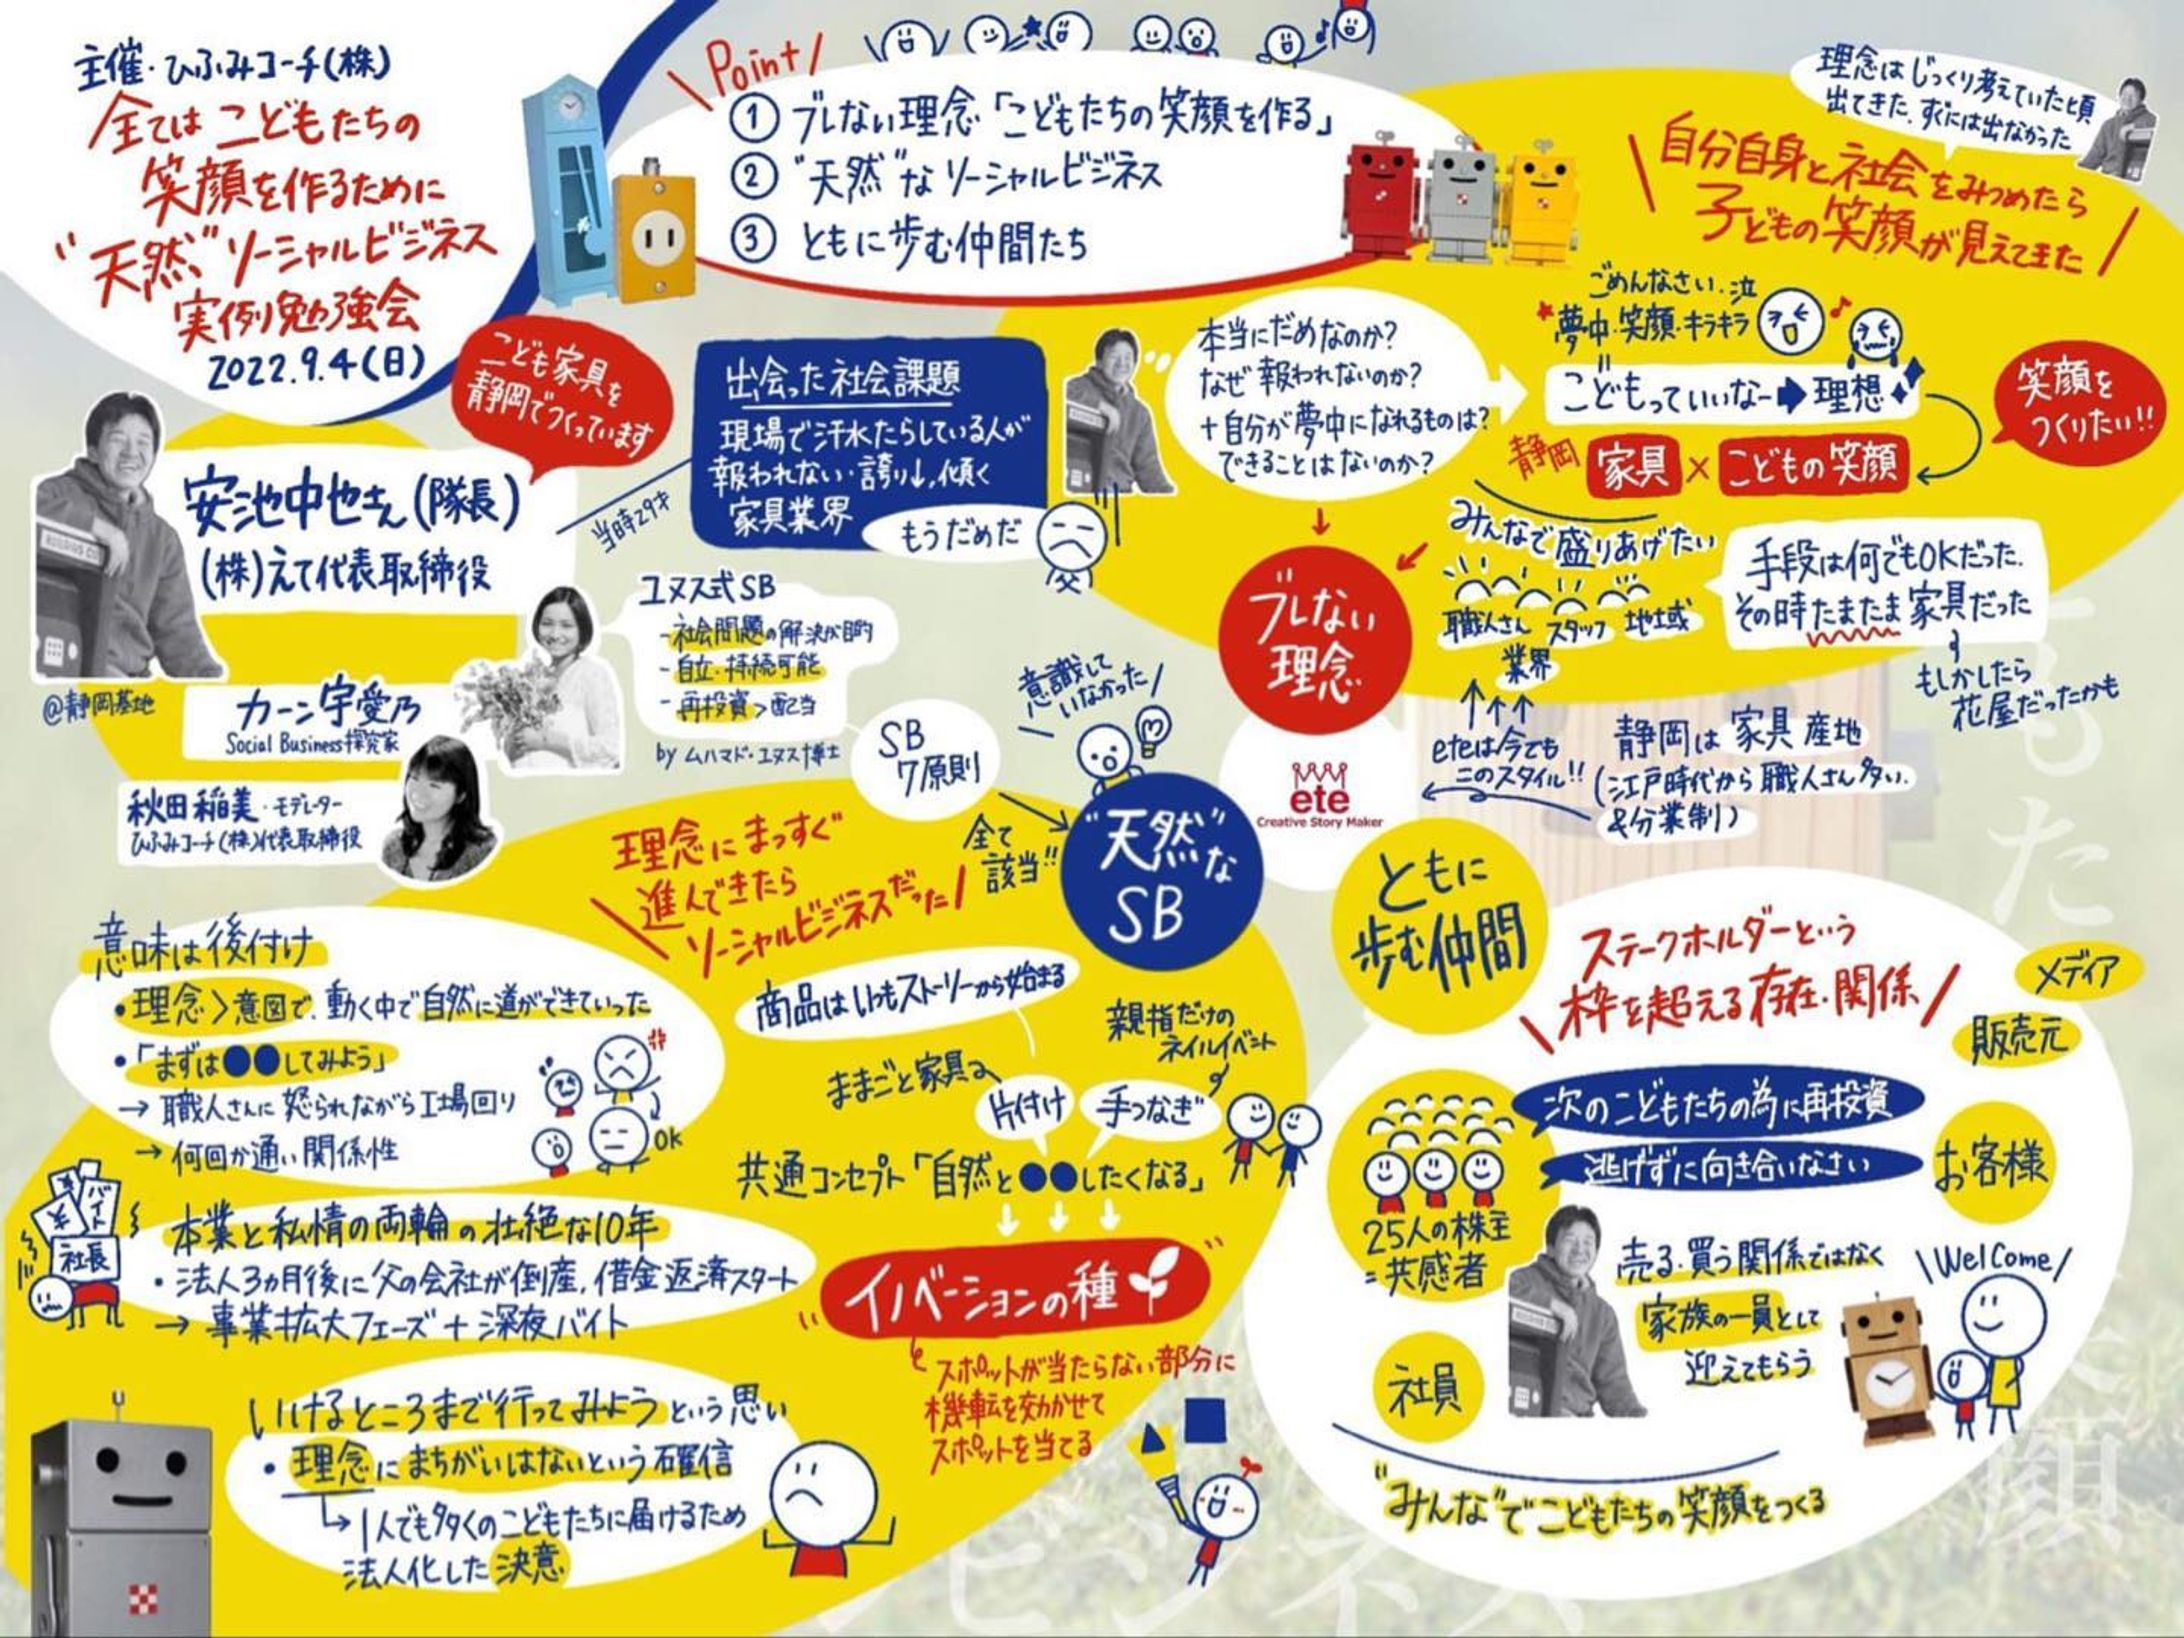 主催・ひふみコーチ(株)
全ては こどもたちの
笑顔を作るために
"天然"ソーシャルビジネス
実例勉強会
2022.9.4(日)
Point
① ブレない理念「こどもたちの笑顔を作る」
② "天然"な ソーシャルビジネス
③ ともに歩む仲間たち
理念はじっくり考えていた頃
出てきた。すぐには出なかった
自分自身と社会をみつめたら
子どもの笑顔が見えてきた
こども家具を
静岡でつくっています
安池中也さん(隊長)
(株)えて代表取締役
@静岡基地
カーン宇愛乃
Social Business探究家
秋田稲美・モデレーター
ひふみコーチ(株)代表取締役
当時29才
出会った社会課題
現場で汗水たらしている人が
報われない・誇り↓,傾く
家具業界
もうだめだ
本当にだめなのか?
なぜ報われないのか?
+自分が夢中になれるものは?
できることはないのか?
ごめんなさい.泣
★夢中・笑顔・キラキラ
こどもっていいなー➡理想
笑顔を
つくりたい!!
静岡 家具×こどもの笑顔
みんなで盛りあげたい
職人さん スタッフ 地域
業界
手段は何でもOKだった.
その時たまたま家具だった
もしかしたら
花屋だったかも
ブレない
理念
eteは今でも
このスタイル!!
静岡は家具産地
(江戸時代から職人さん多い.
&分業制)
ete
Creative Story Maker
ユヌス式SB
-社会問題の解決が目的
-自立・持続可能
-再投資>配当
by ムハマド・ユヌス博士
SB
7原則
意識して
いなかった
全て
該当!!
"天然"な
SB
理念にまっすぐ
進んできたら
ソーシャルビジネスだった
意味は後付け
・理念>意図で、動く中で自然に道ができていった
・「まずは●●してみよう」
→職人さんに怒られながら工場回り
→何回か通い関係性
OK
¥
¥
バイト
社長
本業と私情の両輪の壮絶な10年
・法人3ヵ月後に父の会社が倒産,借金返済スタート
→事業拡大フェーズ+深夜バイト
いけるところまで行ってみようという思い
・理念にまちがいはないという確信
↳1人でも多くのこどもたちに届けるため
法人化した決意
商品はいつもストーリーから始まる
ままごと家具
親指だけの
ネイルイベント
片付け
手つなぎ
共通コンセプト「自然と●●したくなる」
イノベーションの種
スポットが当たらない部分に
機転を効かせて
スポットを当てる
ともに
歩む仲間
ステークホルダーという
枠を超える存在・関係
メディア
販売元
お客様
次のこどもたちの為に再投資
逃げずに向き合いなさい
25人の株主
=共感者
社員
売る・買う関係ではなく
家族の一員として
迎えてもらう
Welcome
"みんな"でこどもたちの笑顔をつくる
ビジネス